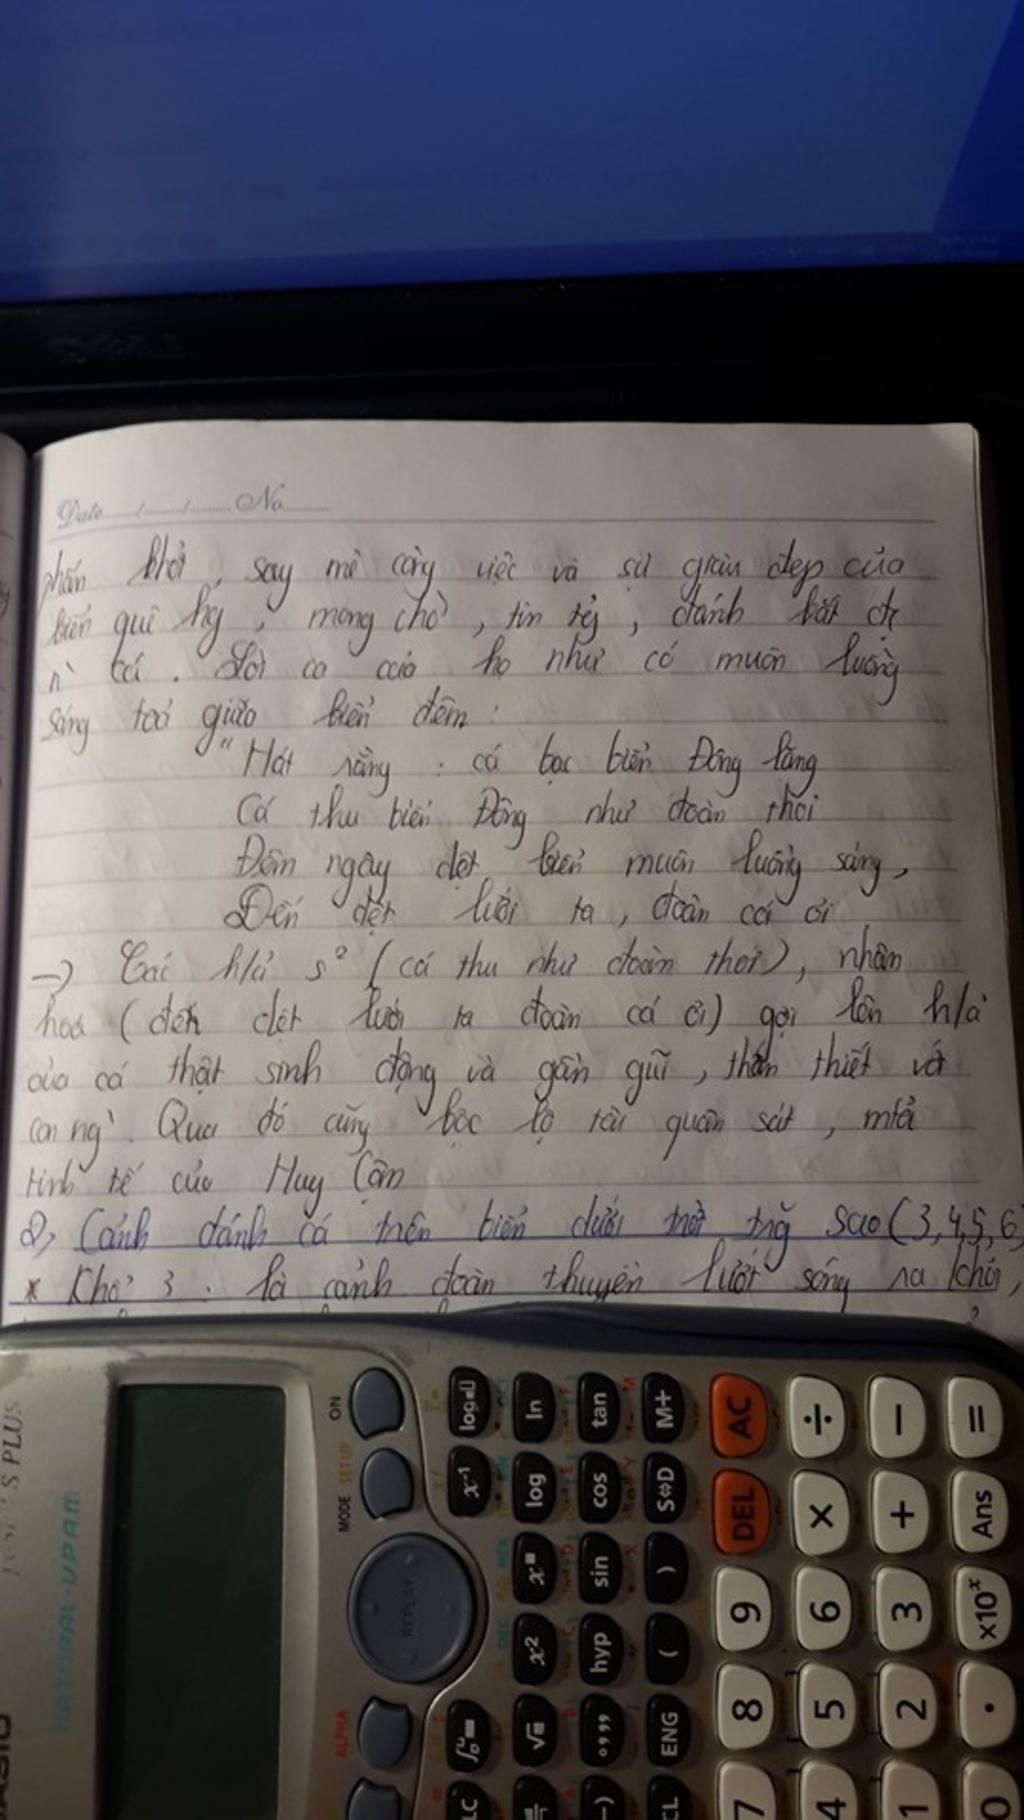 DELL
Date ...../...../........ No ........
phấn khởi, say mê công việc và sự giàu đẹp của
biển quê hg, mong chờ, tin tg, đánh bắt đc
n` cá. Lời ca của họ như có muôn luồng
sáng toả giữa biển đêm:
"Hát rằng: cá bạc biển Đông lặng
Cá thu biển Đông như đoàn thoi
Đêm ngày dệt biển muôn luồng sáng,
Đến dệt lưới ta, đoàn cá ơi
→ Các h/ả s² (cá thu như đoàn thoi), nhân
hoá (đến dệt lưới ta đoàn cá ơi) gợi lên h/ả
của cá thật sinh động và gần gũi, thân thiết với
con ng`. Qua đó cũng bộc lộ tài quan sát, mtả
tinh tế của Huy Cận
2, Cảnh đánh cá trên biển dưới trời trg sao (3,4,5,6)
* Khổ 3: là cảnh đoàn thuyền lướt sóng ra khơi,
S PLUS
NATURAL-V.P.A.M.
CASIO
ON
MODE SETUP
REPLAY
ALPHA
ln tan M+ AC ÷ − =
x⁻¹ log cos S⇔D DEL × + Ans
x■ sin ) 9 6 3 ×10ˣ
x² hyp ( 8 5 2 •
√■ °,,, ENG 7 4 1 0